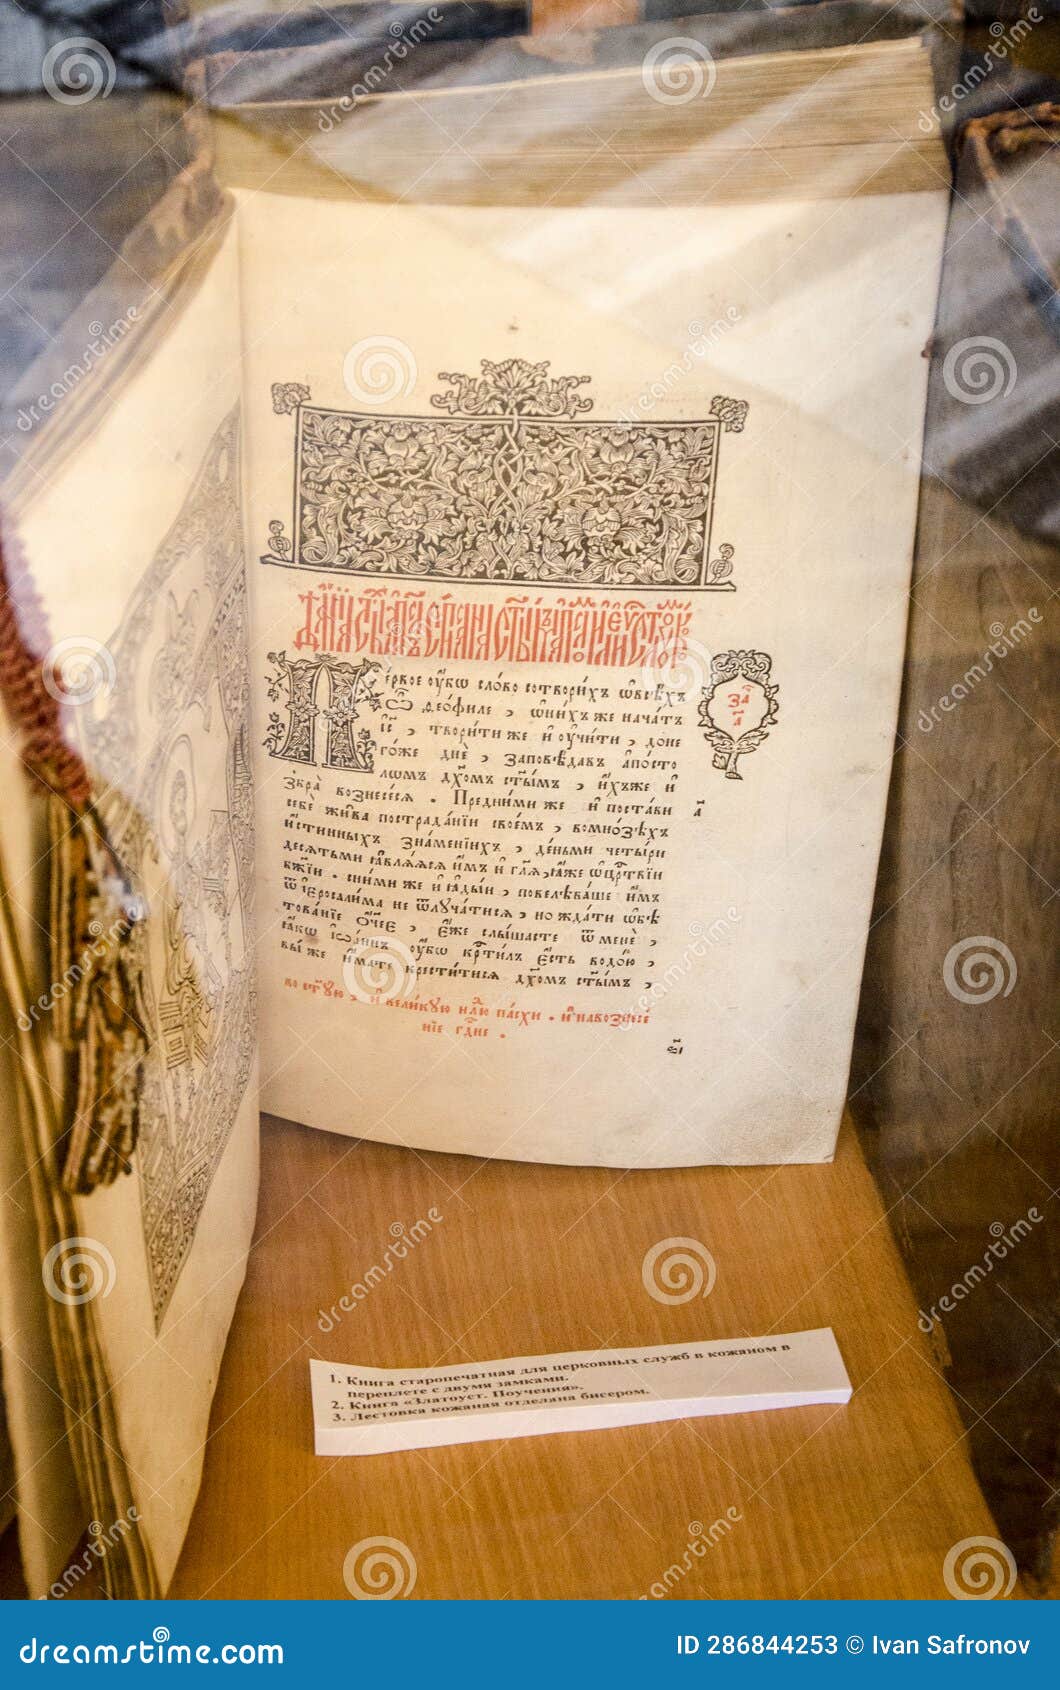 Дѣꙗнїѧ ст҃ых апⷭ҇лъ списана ст҃ымъ апⷭ҇ломъ и еѵⷢ҇листомъ лꙋкою
Первое ᲂу҆́бѡ сло́во сотвори́хъ ѡ҆всѣ́хъ
ѽ ѳео́филе , ѡ҆ни́хъже нача́тъ
і҆и҃съ , твори́тиже и҆ ᲂу҆чи́ти , доне
го́же днѐ , заповѣ́давъ а҆по́сто
ломъ дх҃омъ ст҃ы́мъ , и҆́хъже и҆
збра̀ вознесе́сѧ . Предни́миже и҆ поста́ви
себѐ жи́ва пострада́нїи свое́мъ , вомно́зѣхъ
и҆́стинныхъ зна́менїихъ , де́ньми четы́ри
десѧтьми ꙗ҆влѧ́ѧсѧ и҆̀мъ и҆ гл҃ѧ , ꙗ҆́же ѡ҆црⷭ҇твїи
бж҃їи . сни́миже и҆ ꙗ҆ды́и , повелѣва́ше и҆̀мъ
ѿ і҆еросали́ма не ѿлꙋча́тисѧ , но жда́ти ѡ҆бѣ
това́нїе ѻ҆́ч҃ее , є҆́же слы́шасте ѿ менѐ ,
ꙗ҆́кѡ і҆ѡ҃а́ннъ ᲂу҆́бѡ крⷭ҇ти́лъ є҆́сть водо́ю ,
вы́же и҆́мате крести́тисѧ дх҃омъ ст҃ы́мъ ,
во ст҃ꙋ́ю , и҆ вели́кꙋю недⷧ҇ю па́схи . и҆ навознесе́
нїе гдⷭ҇не .
за҃
а҃
а҃
1. Книга старопечатная для церковных служб в кожаном в
переплете с двумя замками.
2. Книга «Златоуст. Поучения».
3. Лестовка кожаная отделана бисером.
dreamstime.com
ID 286844253 © Ivan Safronov